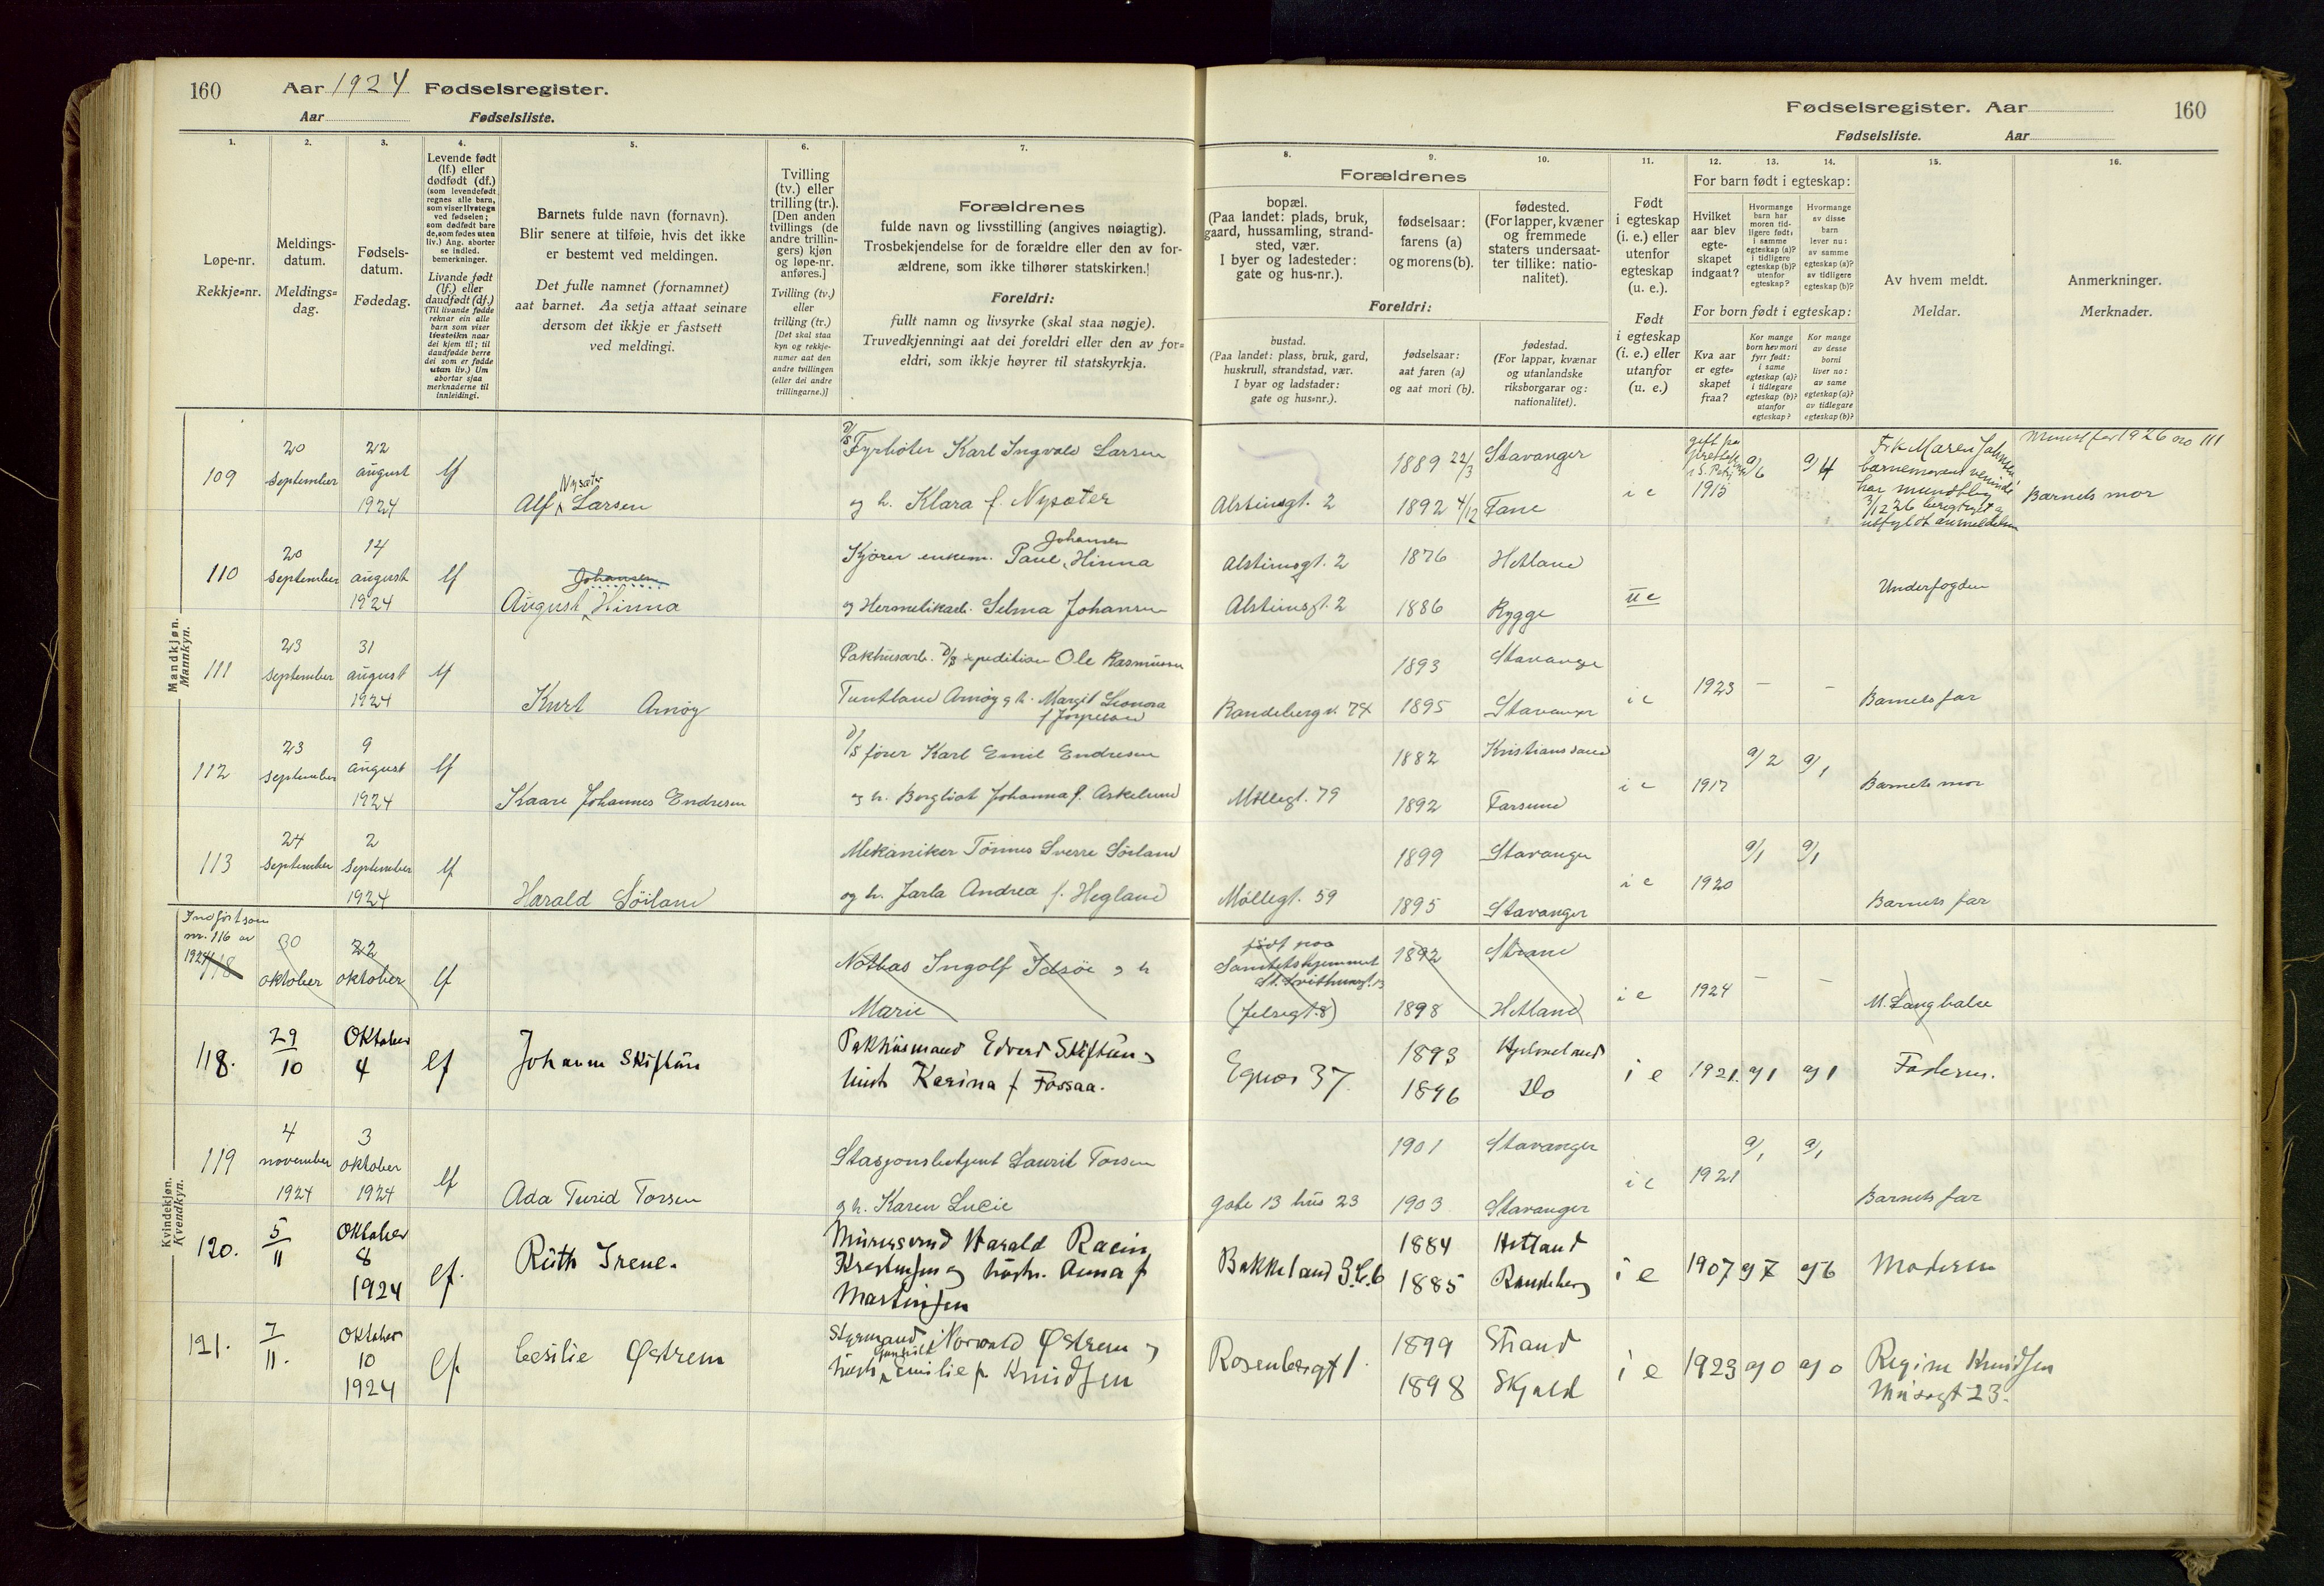 160
Aar 1924 Fødselsregister.
Aar Fødselsliste.
1.
2.
3.
4.
5.
6.
7.
Løpe-nr.
Rekkje=nr.
Meldings-
datum.
Meldings=
dag.
Fødsels-
datum.
Fødedag.
Levende født
(lf.) eller
dødfødt (df.)
(som levendefødt
regnes alle barn,
som viser livstegn
ved fødselen;
som dødfødt bare
de, som fødes uten
liv.) Ang. aborter
se indled.
bemerkninger.
Livande født
(lf.) eller
daudfødt (df.)
(Til livande fødde
reknar ein alle
barn som viser
livsteikn naar
dei kjem til; til
daudfødde berre
dei som er fødde
utan liv.) Um
abortar sjaa
merknaderne til
innleidingi.
Barnets fulde navn (fornavn).
Blir senere at tilføie, hvis det ikke
er bestemt ved meldingen.
Det fulle namnet (fornamnet)
aat barnet. Aa setja attaat seinare
dersom det ikkje er fastsett
ved meldingi.
Tvilling
(tv.) eller
trilling (tr.).
[Den anden
tvillings (de
andre trillin-
gers) kjøn
og løpe-nr.
anføres.]
Tvilling (tv.)
eller
trilling (tr.)
[Det skal staa
kyn og rekkje-
numer aat den
andre tvillingen
(eller dei andre
trillingarne.)]
Forældrenes
fulde navn og livsstilling (angives nøiagtig).
Trosbekjendelse for de forældre eller den av for-
ældrene, som ikke tilhører statskirken.
Foreldri:
fullt namn og livsyrke (skal staa nøgje).
Truvedkjenningi aat dei foreldri eller den av for=
eldri, som ikkje høyrer til statskyrkja.
Mandkjøn.
Mannkyn.
109
20
September
22
august
1924
lf
Nysæter
Alf Larsen
D/S
Fyrbøter Karl Ingvald Larsen
og h. Klara f. Nysæter
110
20
September
14
august
1924
lf
Johansen
August Hinna
Johansen
Kjører enkem. Paul Hinna
og Hermetikarb. Selma Johansen
111
23
September
31
august
1924
lf
Kurt Arnøy
Pakhusarb. D/S xpedition Ole Rasmussen
Tuntland Arnøy og h. Margit Leonora
f. Jørpeland
112
23
September
9
august
1924
lf
Kaare Johannes Endresen
D/S fører Karl Emil Endresen
og h. Borgliot Johanna f. Askelund
113
24
September
2
September
1924
lf
Harald Söiland
Mekaniker Tønnes Sverre Söiland
og h. Jarla Andrea f. Hegland
Kvindekjøn.
Kvendkyn.
Indført som
nr. 116 av
1924
118
30
oktober
22
oktober
lf
Ingolf Idsöe og h
Marie
118.
29
10
Oktober
4
lf
Pakhusmand Edvard Skiftun og
Hust. Karina f Fossaa.
119
4
november
1924
3
oktober
1924
lf
Ada Turid Torsen
Stasjonsbetjent Laurit Torsen
og h. Karen Lucie
120.
5
11
Oktober
8
1924
lf.
Ruth Irene.
Murersvend Harald
og hustr. Anna f
Martinsen
121.
7
11.
Oktober
10
1924
lf
Cesilie Østrem
Styrmand Norvald Østrem og
Gunhild
hust. Emilie f. Knudsen
Fødselsregister. Aar
160
Fødselsliste. Aar
8.
9.
10.
11.
12.
13.
14.
15.
16.
Forældrenes
bopæl.
(Paa landet: plads, bruk,
gaard, hussamling, strand-
sted, vær.
I byer og ladesteder:
gate og hus-nr.).
fødselsaar:
farens (a)
og morens (b).
fødested.
(For lapper, kvæner
og fremmede
staters undersaat-
ter tillike: natio-
nalitet).
Foreldri:
bustad.
(Paa landet: plass, bruk, gard,
huskrull, strandstad, vær.
I byar og ladstader:
gate og hus=nr.).
fødselsaar:
aat faren (a)
og aat mori (b).
fødestad.
(For lappar, kvænar
og utanlandske
riksborgarar og:
nationalitet).
Født
i egteskap
(i. e.) eller
utenfor
egteskap
(u. e.).
Født
i egteskap
(i. e.) eller
utanfor
(u. e.)
For barn født i egteskap:
Hvilket
aar blev
egte-
skapet
indgaat?
Hvormange
barn har
moren tid-
ligere født:
i samme
egteskap (a)?
i tidligere
egteskap (b)?
utenfor
egteskap?
Hvormange
av disse
barn
lever nu:
av samme
egteskap (a)?
av tidligere
egteskap (b)?
For born født i egteskap:
Kva aar
er egte=
skapet
fraa?
Kor mange
born hev mori
fyrr født:
i same
egteskap (a)?
i tidlegare
egteskap (b)?
utanfor
egteskap?
Kor mange
av desse
borni
liver no:
av same
egteskap (a)?
av tidlegare
egteskap (b)?
Av hvem meldt.
Meldar.
Anmerkninger.
Merknader.
Alstinsgt. 2
1889 22/3
1892 4/12
Stavanger
Fane
i e
1915
a/6
a/4
Frk Maren
3/12 26
1926 no 111
Barnets mor
Alstinsgt. 2
Alstinsgt. 2
1876
1886
Hetland
Rygge
u e
Underfogden
Randebergv. 74
1893
1895
Stavanger
Stavanger
i e
1923
–
–
Barnets far
Møllegt. 79
1882
1892
Kristianssand
Farsund
i e
1917
a/2
a/1
Barnets mor
Møllegt. 59
1899
1895
Stavanger
Stavanger
i e
1920
a/1
a/1
Barnets far
født paa
Sanitetshjemmet
St. Svithunsgt. 13
(Jelsegt. 8)
1892
1898
Strand
Hetland
i e
1924
–
–
M. Langbalse
Egnos 37.
1893
1896
Hjelmeland
Do
i e
1921.
a) 1
a) 1
Faderen.
gate 13 hus 23
1901
1903
Stavanger
Stavanger
i e
1921
a/1
a/1
Barnets far
Bakkeland
1884
1885
Hetland
Randeberg
i e
1907
a) 7
a) 6
Moderen
Rosenbergt 1.
1899
1898
Strand
Skjold
i e
1923
a) 0
a) 0
Regine Knudsen
Musegt 23.